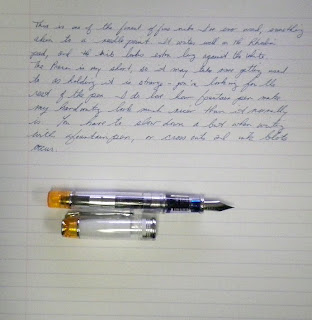 This is one of the finest of fine nibs I've ever used, something
akin to a needle point. It writes well on the Rhodia
pad, and the nib looks extra long against the white.
The Pen is very short, so it may take some getting used
to as holding it is strange - you're looking for the
rest of the pen. I do love how fountain pens make
my handwriting look much nicer than it normally
is. You have to slow down a bit when writing
with a fountain pen, or cross outs and ink blots
occur.